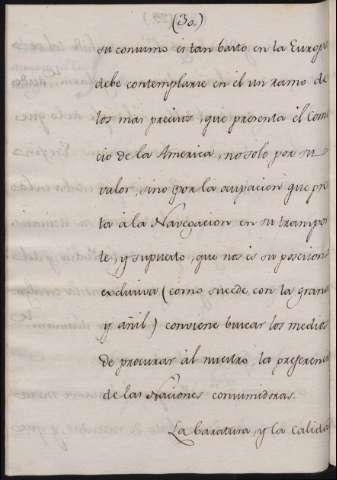 (30)
su consumo es tan basto en la Europa
debe contemplarse en él un ramo de
los mas precisos, que presenta el Com
cio de la America, no solo por su
valor, sino por la ocupacion que pres
ta à la Navegacion en su transpor
te, y supuesto, que nos es su posesion
exclusiva (como sucede con la grana
y añil) conviene buscar los medios
de procurar àl nuestro la preferenc
de las Naciones consumidoras.
La baratura, y la calidad